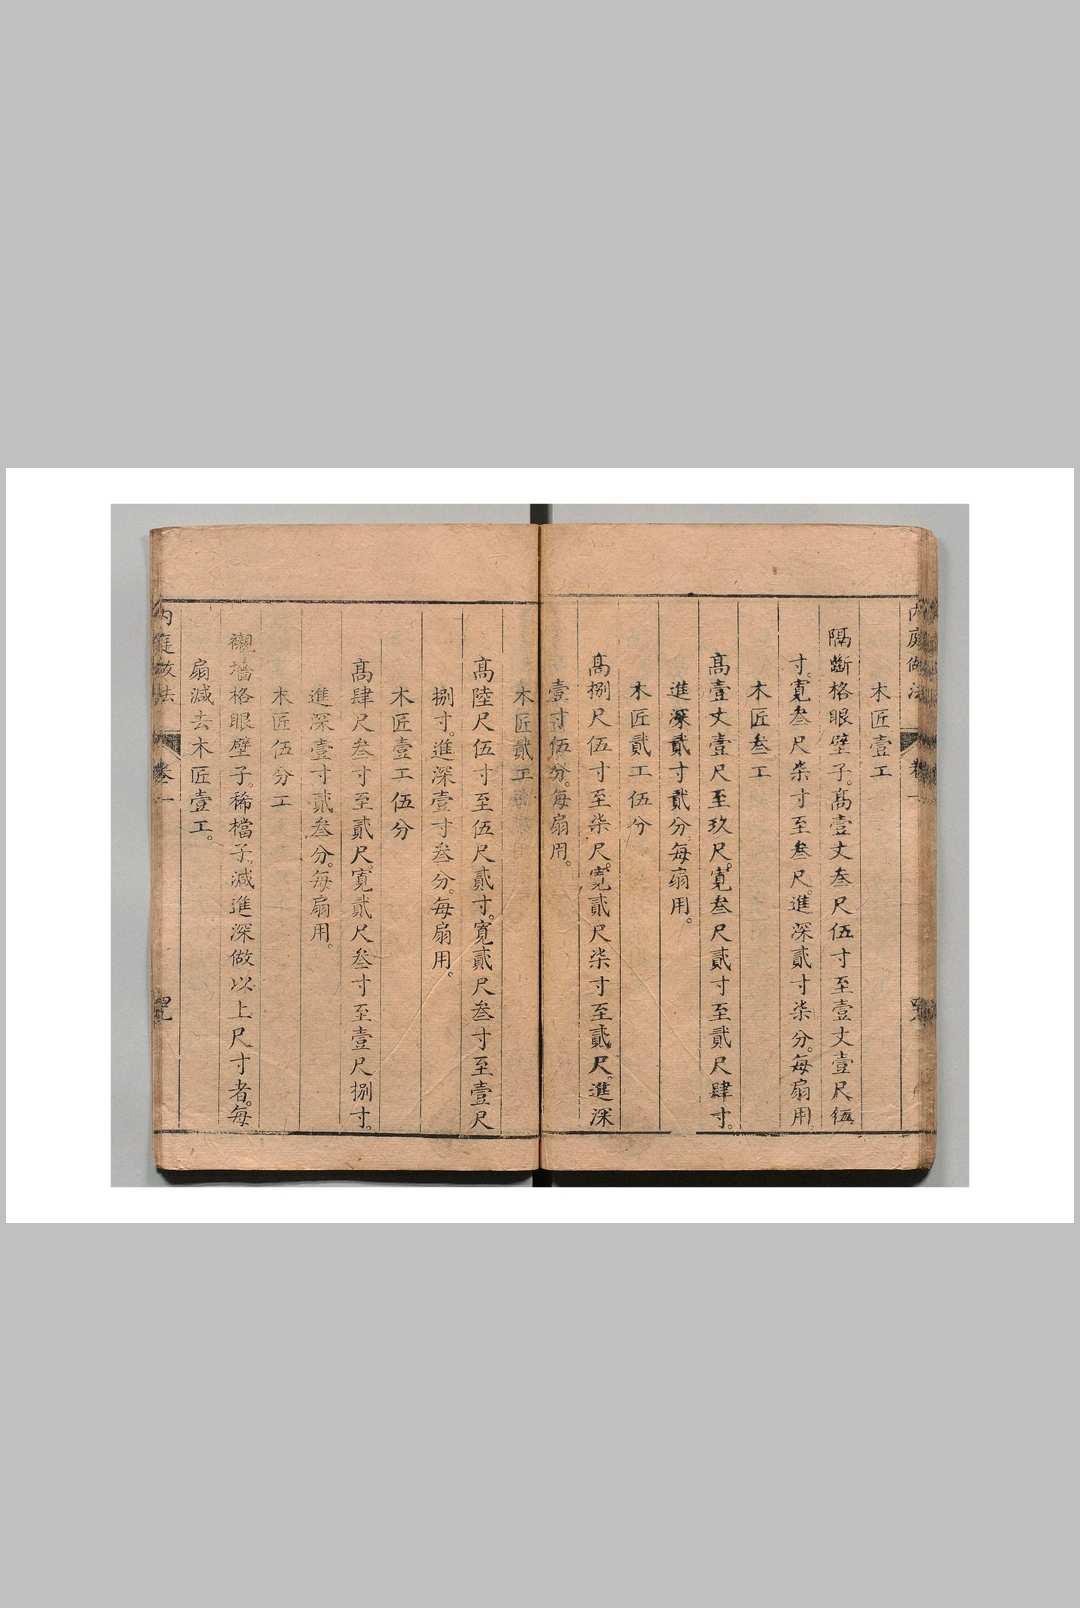 內庭做法
卷一
木匠壹工
隔斷格眼壁子。髙壹丈叁尺伍寸至壹丈壹尺伍
寸。寬叁尺柒寸至叁尺。進深貳寸柒分。每扇用
木匠叁工
髙壹丈壹尺至玖尺。寬叁尺貳寸至貳尺肆寸。
進深貳寸貳分。每扇用。
木匠貳工伍分
髙捌尺伍寸至柒尺。寬貳尺柒寸至貳尺。進深
壹寸伍分。每扇用。
木匠貳工
髙陸尺伍寸至伍尺貳寸。寬貳尺叁寸至壹尺
捌寸。進深壹寸叁分。每扇用。
木匠壹工伍分
髙肆尺叁寸至貳尺。寬貳尺叁寸至壹尺捌寸。
進深壹寸貳叁分。每扇用。
木匠伍分工
襯墻格眼壁子。稀檔子。減進深做以上尺寸者。每
扇減去木匠壹工。
內庭做法
卷一